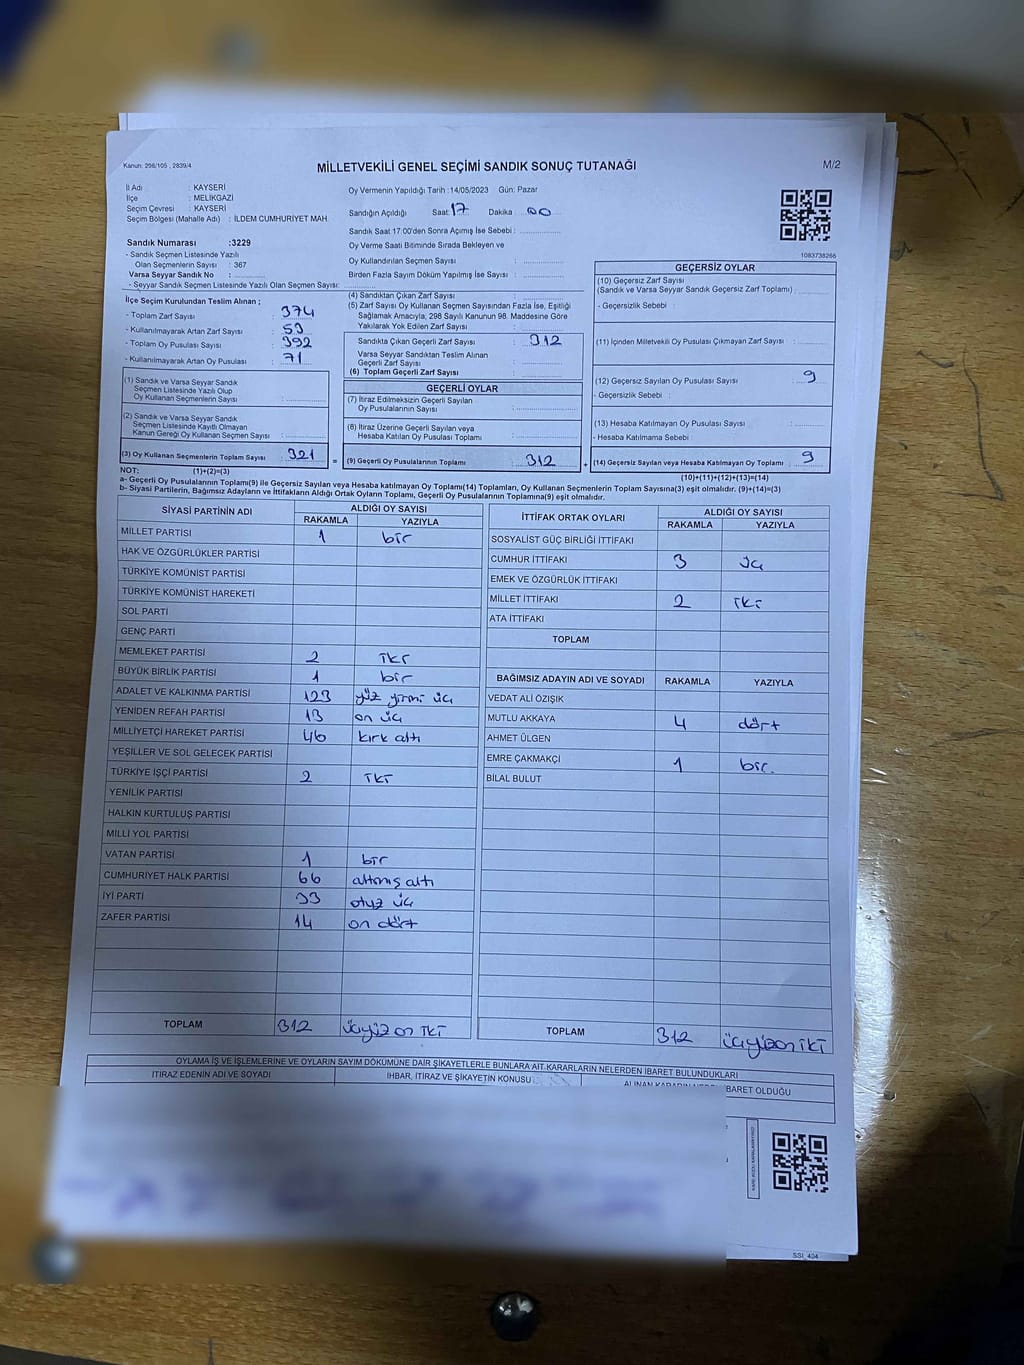 Kanun: 298/105 , 2839/4
MİLLETVEKİLİ GENEL SEÇİMİ SANDIK SONUÇ TUTANAĞI
M/2
İl Adı : KAYSERİ
İlçe : MELİKGAZİ
Seçim Çevresi : KAYSERİ
Seçim Bölgesi (Mahalle Adı) : İLDEM CUMHURİYET MAH.
Sandık Numarası :3229
- Sandık Seçmen Listesinde Yazılı
Olan Seçmenlerin Sayısı : 367
Varsa Seyyar Sandık No :
- Seyyar Sandık Seçmen Listesinde Yazılı Olan Seçmen Sayısı:
Oy Vermenin Yapıldığı Tarih :14/05/2023 Gün: Pazar
Sandığın Açıldığı Saat: 17 Dakika : 00
Sandık Saat 17:00'den Sonra Açılmış İse Sebebi :
Oy Verme Saati Bitiminde Sırada Bekleyen ve
Oy Kullandırılan Seçmen Sayısı :
Birden Fazla Sayım Döküm Yapılmış İse Sayısı :
1083738266
İlçe Seçim Kurulundan Teslim Alınan ;
- Toplam Zarf Sayısı : 374
- Kullanılmayarak Artan Zarf Sayısı : 53
- Toplam Oy Pusulası Sayısı : 392
- Kullanılmayarak Artan Oy Pusulası : 71
(1) Sandık ve Varsa Seyyar Sandık
Seçmen Listesinde Yazılı Olup
Oy Kullanan Seçmenlerin Sayısı :
(2) Sandık ve Varsa Seyyar Sandık
Seçmen Listesinde Kayıtlı Olmayan
Kanun Gereği Oy Kullanan Seçmen Sayısı :
(3) Oy Kullanan Seçmenlerin Toplam Sayısı : 321
(4) Sandıktan Çıkan Zarf Sayısı :
(5) Zarf Sayısı Oy Kullanan Seçmen Sayısından Fazla İse, Eşitliği
Sağlamak Amacıyla, 298 Sayılı Kanunun 98. Maddesine Göre
Yakılarak Yok Edilen Zarf Sayısı :
Sandıkta Çıkan Geçerli Zarf Sayısı : 312
Varsa Seyyar Sandıktan Teslim Alınan
Geçerli Zarf Sayısı :
(6) Toplam Geçerli Zarf Sayısı :
GEÇERLİ OYLAR
(7) İtiraz Edilmeksizin Geçerli Sayılan
Oy Pusulalarının Sayısı :
(8) İtiraz Üzerine Geçerli Sayılan veya
Hesaba Katılan Oy Pusulası Toplamı :
= (9) Geçerli Oy Pusulalarının Toplamı : 312
GEÇERSİZ OYLAR
(10) Geçersiz Zarf Sayısı
(Sandık ve Varsa Seyyar Sandık Geçersiz Zarf Toplamı) :
- Geçersizlik Sebebi :
(11) İçinden Milletvekili Oy Pusulası Çıkmayan Zarf Sayısı :
(12) Geçersiz Sayılan Oy Pusulası Sayısı : 9
- Geçersizlik Sebebi :
(13) Hesaba Katılmayan Oy Pusulası Sayısı :
- Hesaba Katılmama Sebebi :
+ (14) Geçersiz Sayılan veya Hesaba Katılmayan Oy Toplamı : 9
NOT: (1)+(2)=(3)
(10)+(11)+(12)+(13)=(14)
a- Geçerli Oy Pusulalarının Toplamı(9) ile Geçersiz Sayılan veya Hesaba Katılmayan Oy Toplamı(14) Toplamları, Oy Kullanan Seçmenlerin Toplam Sayısına(3) eşit olmalıdır. (9)+(14)=(3)
b- Siyasi Partilerin, Bağımsız Adayların ve İttifakların Aldığı Ortak Oyların Toplamı, Geçerli Oy Pusulalarının Toplamına(9) eşit olmalıdır.
SİYASİ PARTİNİN ADI ALDIĞI OY SAYISI
RAKAMLA YAZIYLA
MİLLET PARTİSİ 1 bir
HAK VE ÖZGÜRLÜKLER PARTİSİ
TÜRKİYE KOMÜNİST PARTİSİ
TÜRKİYE KOMÜNİST HAREKETİ
SOL PARTİ
GENÇ PARTİ
MEMLEKET PARTİSİ 2 iki
BÜYÜK BİRLİK PARTİSİ 1 bir
ADALET VE KALKINMA PARTİSİ 123 yüz yirmi üç
YENİDEN REFAH PARTİSİ 13 on üç
MİLLİYETÇİ HAREKET PARTİSİ 46 kırk altı
YEŞİLLER VE SOL GELECEK PARTİSİ
TÜRKİYE İŞÇİ PARTİSİ 2 iki
YENİLİK PARTİSİ
HALKIN KURTULUŞ PARTİSİ
MİLLİ YOL PARTİSİ
VATAN PARTİSİ 1 bir
CUMHURİYET HALK PARTİSİ 66 altmış altı
İYİ PARTİ 33 otuz üç
ZAFER PARTİSİ 14 on dört
TOPLAM 312 üçyüz on iki
İTTİFAK ORTAK OYLARI ALDIĞI OY SAYISI
RAKAMLA YAZIYLA
SOSYALİST GÜÇ BİRLİĞİ İTTİFAKI
CUMHUR İTTİFAKI 3 üç
EMEK VE ÖZGÜRLÜK İTTİFAKI
MİLLET İTTİFAKI 2 iki
ATA İTTİFAKI
TOPLAM
BAĞIMSIZ ADAYIN ADI VE SOYADI RAKAMLA YAZIYLA
VEDAT ALİ ÖZIŞIK
MUTLU AKKAYA 4 dört
AHMET ÜLGEN
EMRE ÇAKMAKÇI 1 bir.
BİLAL BULUT
TOPLAM 312 üçyüzon iki
OYLAMA İŞ VE İŞLEMLERİNE VE OYLARIN SAYIM DÖKÜMÜNE DAİR ŞİKAYETLERLE BUNLARA AİT KARARLARIN NELERDEN İBARET BULUNDUKLARI
İTİRAZ EDENİN ADI VE SOYADI İHBAR, İTİRAZ VE ŞİKAYETİN KONUSU
BARET OLDUĞU
SSİ_404